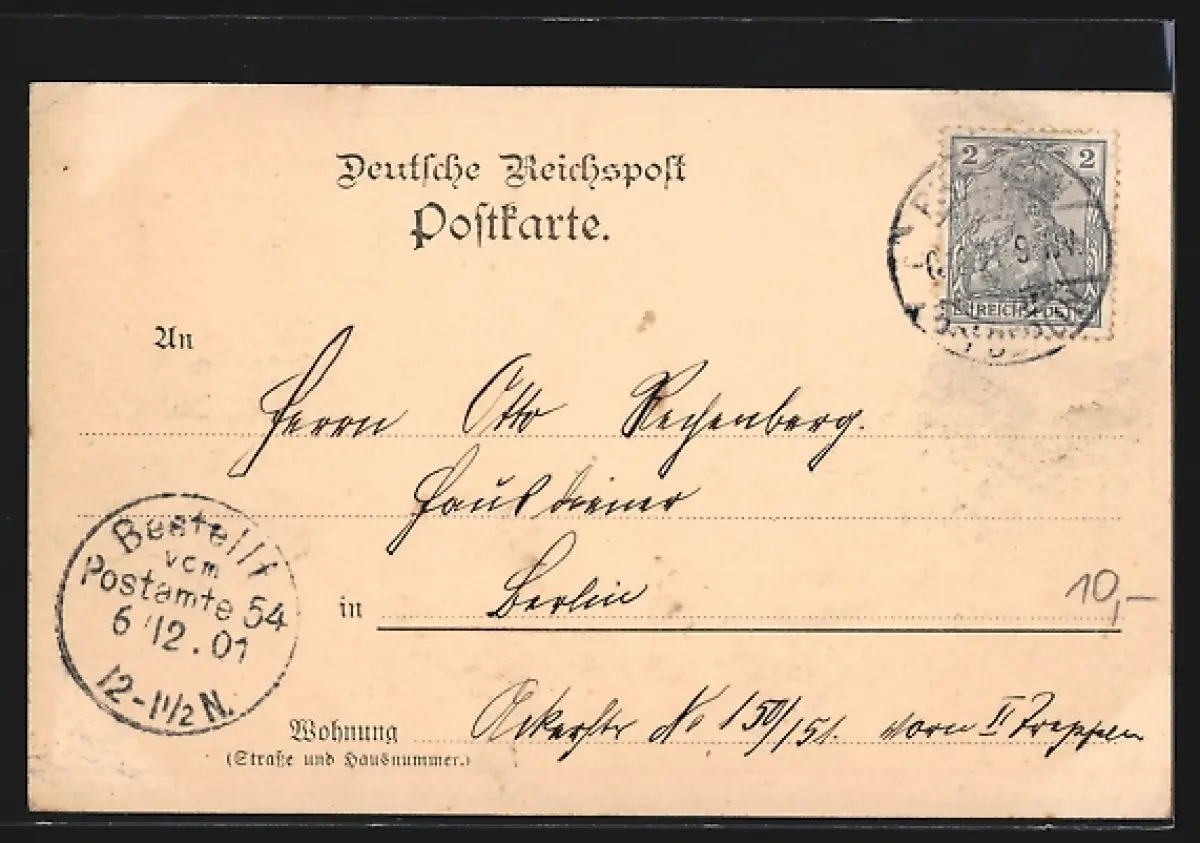 Deutsche Reichspost
Postkarte.
2 2
REICHSPOST
9
An
Herrn Otto Rechenberg.
Hausdiener
in Berlin
10,-
Bestellt
vom
Postamte 54
6/12.01
12-1½N.
Wohnung Ackerstr No 150/151. vorn II Treppen
(Straße und Hausnummer.)